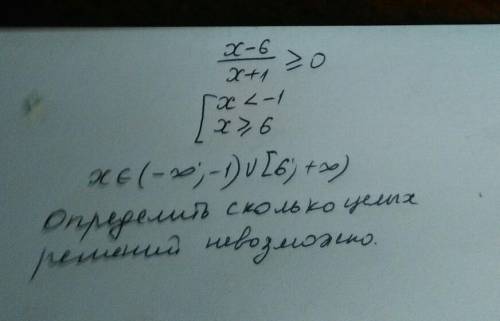 x-6
x+1 ≥ 0
x < -1
x ≥ 6
x ∈ (-∞; -1) ∪ [6; +∞)
Определить сколько целых
решений невозможно.